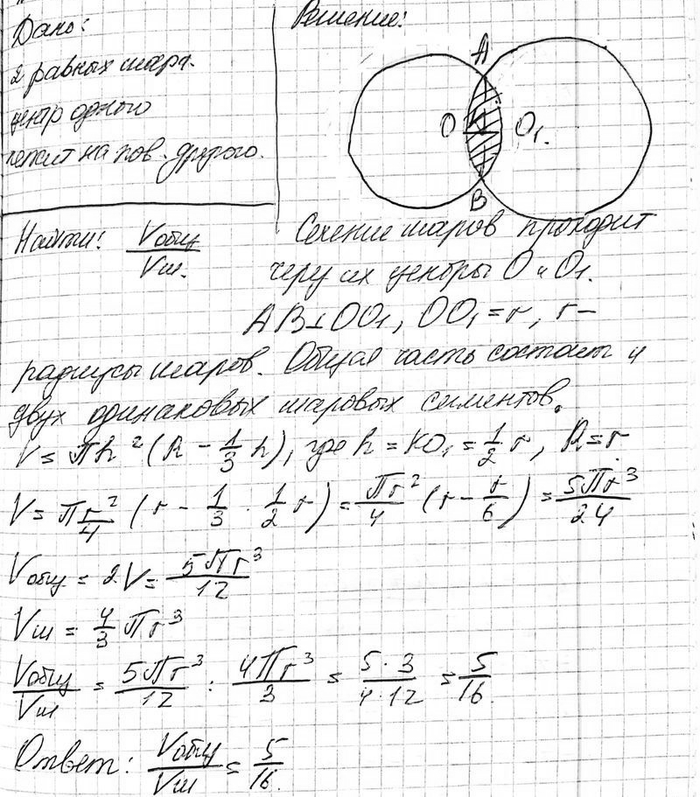 Дано:
2 равных шара.
центр одного
лежит на пов. другого.
Решение:
A
O O₁.
B
Найти: Vобщ/Vш.
Сечение шаров проходит
через их центры O и O₁.
AB⊥OO₁, OO₁ = r, r –
радиусы шаров. Общая часть состоит и
двух одинаковых шаровых сегментов.
V = πh²(R - 1/3 h), где h = KO₁ = 1/2 r, R = r.
V = π r²/4 (r - 1/3 · 1/2 r) = πr²/4 (r - r/6) = 5πr³/24
Vобщ = 2V = 5πr³/12
Vш = 4/3 πr³
Vобщ/Vш = 5πr³/12 : 4πr³/3 = 5·3/4·12 = 5/16
Ответ: Vобщ/Vш = 5/16.